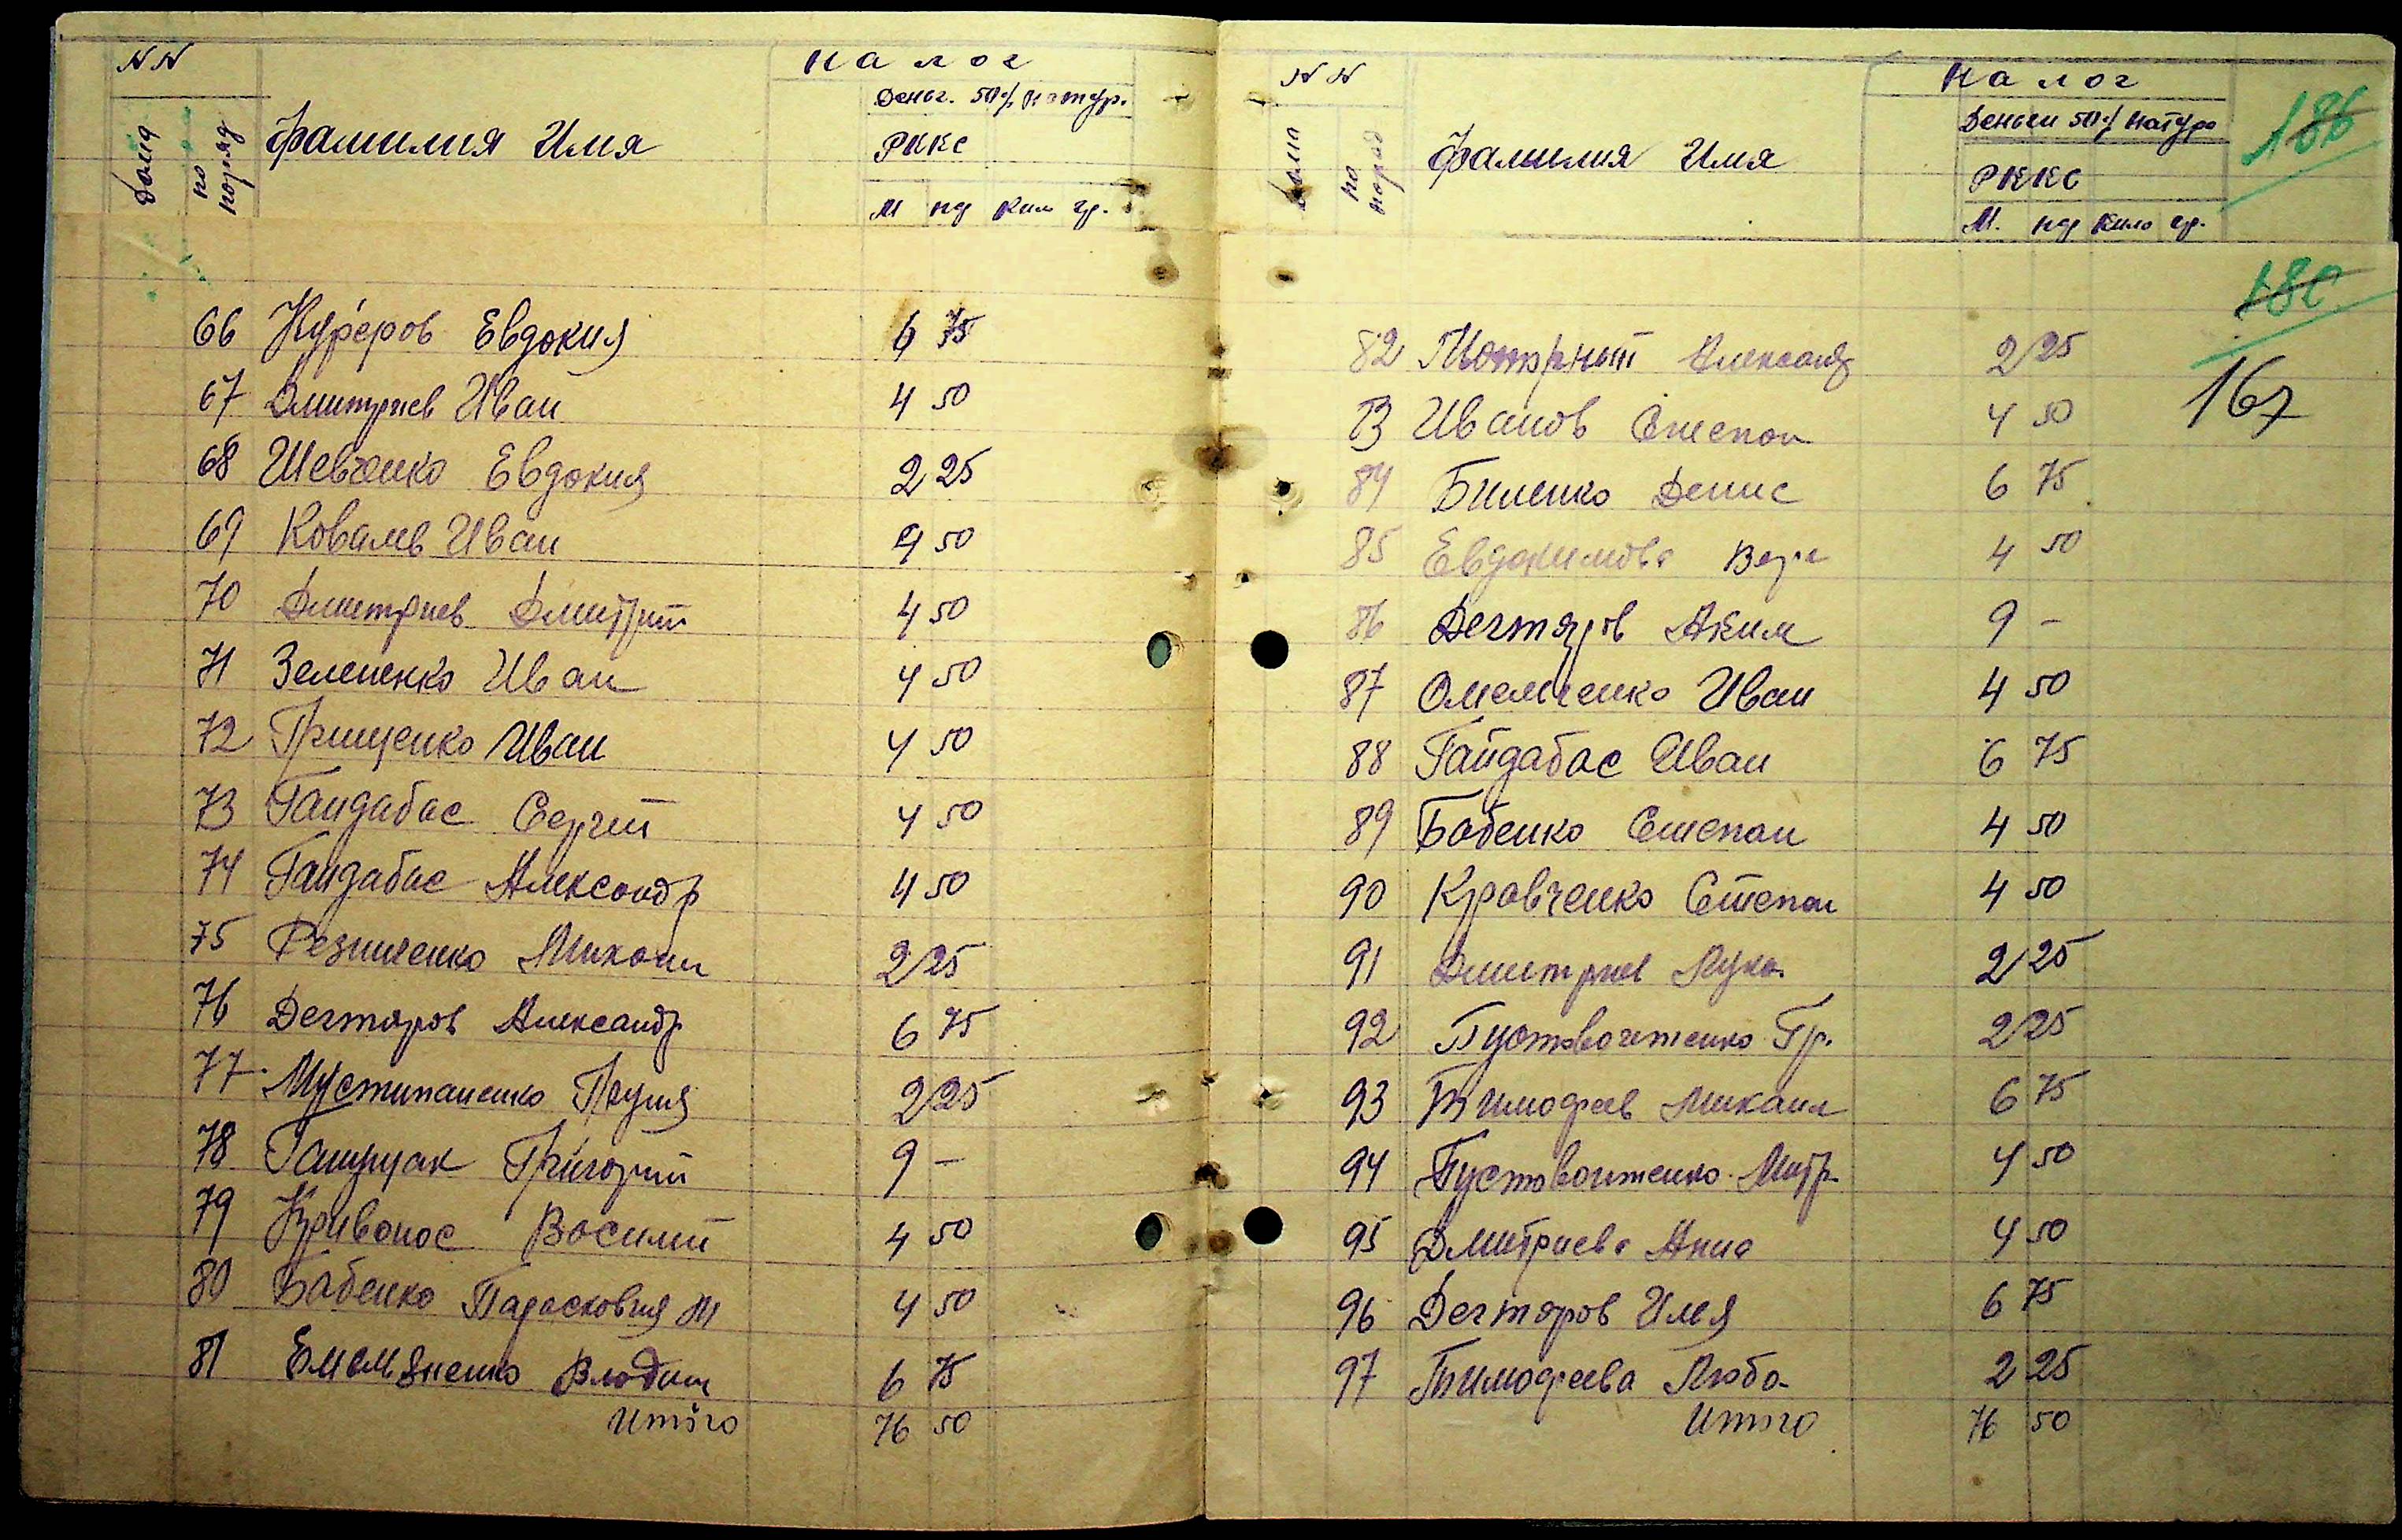 NN
налог
Деньг. 50% натур.
дома
по поряд
фамилия Имя
РККС
М пф кил гр.
66 Куреров Евдокия 6 75
67 Дмитриев Иван 4 50
68 Шевченко Евдокия 2 25
69 Ковалев Иван 4 50
70 Дмитриев Дмитрий 4 50
71 Зелененко Иван 4 50
72 Грищенко Иван 4 50
73 Гайдабас Сергей 4 50
74 Гайдабас Александр 4 50
75 Резниченко Михаил 2 25
76 Дегтяров Александр 6 75
77 2 25
78 Григорий 9 –
79 Кривонос Василий 4 50
80 Бабенко Парасковия М 4 50
81 Емельяненко Владим 6 75
Итого 76 50
NN
налог
Деньги 50% натуро
дома
по поряд
фамилия Имя
РККС
М. пф кило гр.
186
180
167
82 Александр 2 25
83 Иванов Степан 4 50
84 Биленко Денис 6 75
85 Евдокимова Вера 4 50
86 Дегтяров Аким 9 –
87 Омельченко Иван 4 50
88 Гайдабас Иван 6 75
89 Бабенко Степан 4 50
90 Кравченко Степан 4 50
91 Дмитриев Лука 2 25
92 Пустовойтенко Гр. 2 25
93 Тимофеев Михаил 6 75
94 Пустовойтенко Митр. 4 50
95 Дмитриева Анна 4 50
96 Дегтяров Илья 6 75
97 Тимофеева Люба 2 25
Итого 76 50